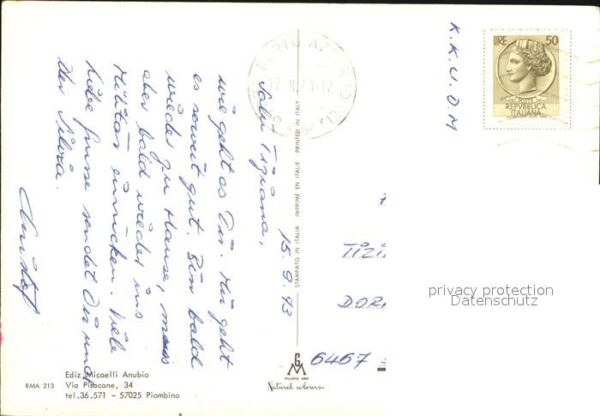 15.9.73
Salü Tiziana,
wie geht es Dir. Mir geht
es soweit gut. Bin bald
wieder zu Hause, muss
aber bald wieder ins
Militär einrücken. Viele
liebe Grüsse sendet Dir und
der Silvia.
K.K.U.D.M
LIRE 50
REPVBBLICA
ITALIANA
TIZI
DORF
6467
privacy protection
Datenschutz
STAMPATO IN ITALIA IMPRIMÉ EN ITALIE PRINTED IN ITALY
Natural colorcro
RMA 213
Ediz. Micaelli Anubio
Via Pisacane, 34
tel. 36.571 - 57025 Piombino